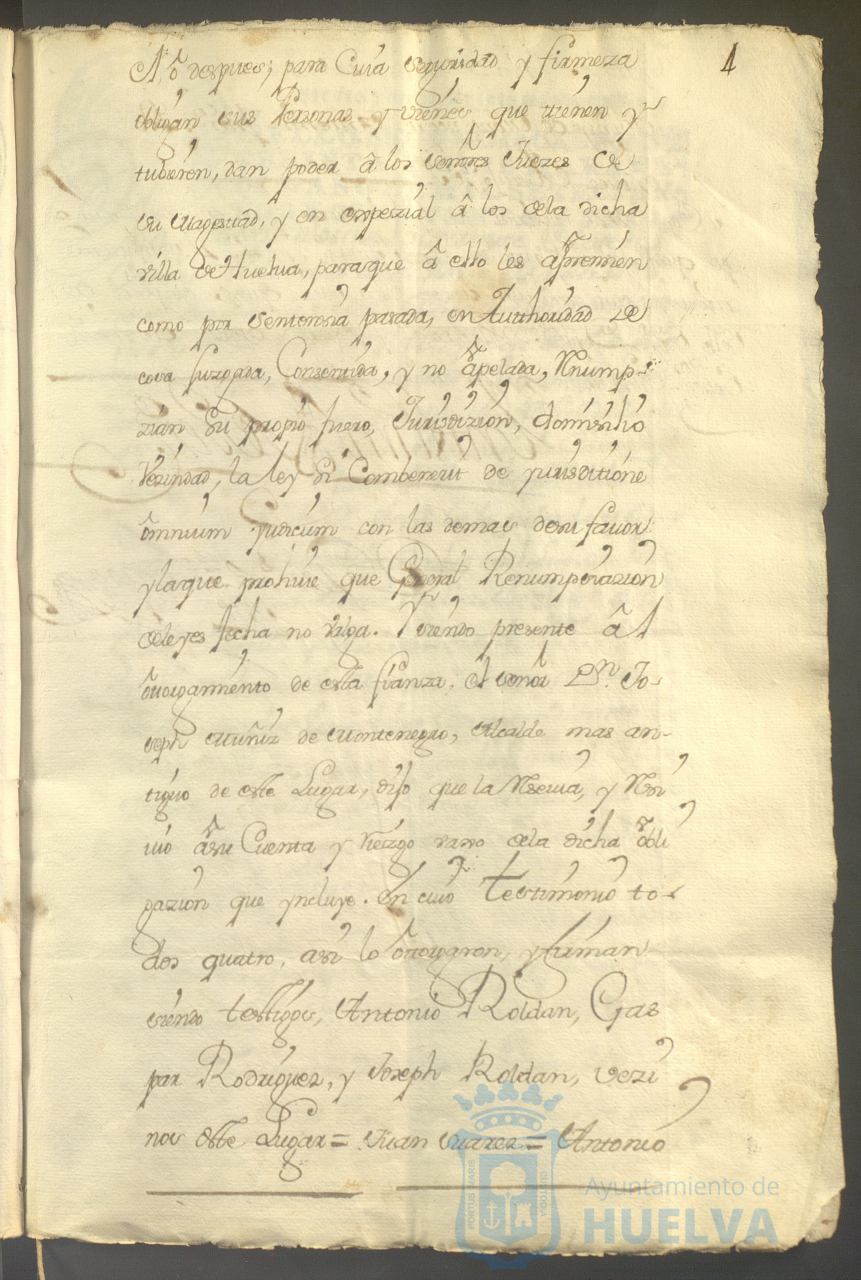 4
despues; para Cuia seguridad y firmeza
obligan sus Personas y vienes que tienen y
tubieren, dan poder â los señores Juezes de
su Magestad, y en especial â los dela dicha
villa de Huelua, paraque â ello les apremien
como por sentensia pasada, en Authoridad de
cosa Juzgada, Consentida, y no âpelada, Rnump-
zian su propio fuero, Jurisdizion, domisilio
Vezindad, la ley si Combenerit de jurisditione
ômnium judicum con las demas desu fauor
ylaque prohiue que General Renumpziazion
deleyes fecha no valga. Y siendo presente â l
ôtorgamiento de esta fianza, el señor Dn. Jo-
seph Muñiz de Montenegro, Alcalde mas an-
tiguo de este Lugar, dijo que la Rseuia, y Rsi
uio âsu Cuenta y Riezgo vaxo dela dicha ôbli
gazion que yncluye. En cuio Testimonio to-
dos quatro, asi lo ôtorgaron, y firman
siendo testigos, Antonio Roldan, Gas
par Rodriguez, y Joseph Roldan, vezi
nos deste Lugar = Juan Suarez = Antonio
PORTUS MARIS
CUSTODIA
Ayuntamiento de
HUELVA